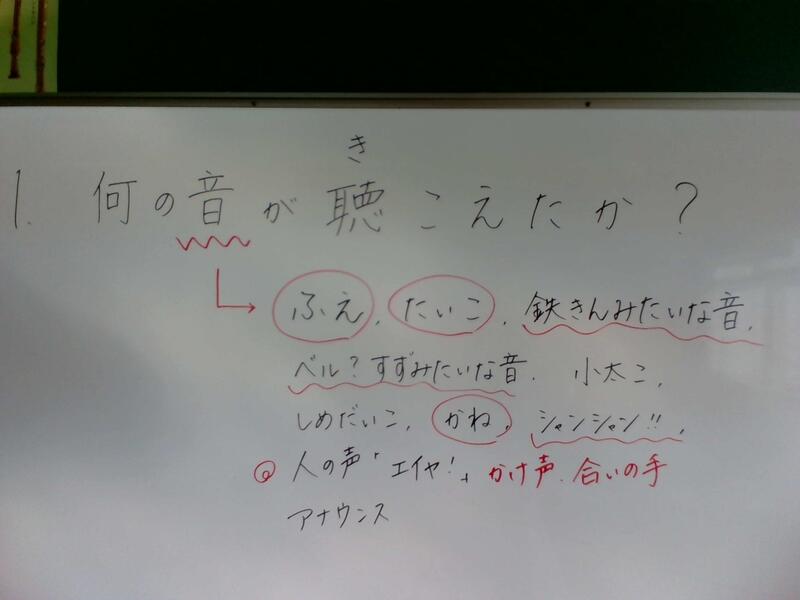 き
1. 何の音が聴こえたか?
ふえ、たいこ、鉄きんみたいな音、
ベル?すずみたいな音、小太こ、
しめだいこ、かね、シャンシャン!!、
人の声「エイヤ!」かけ声、合いの手
アナウンス